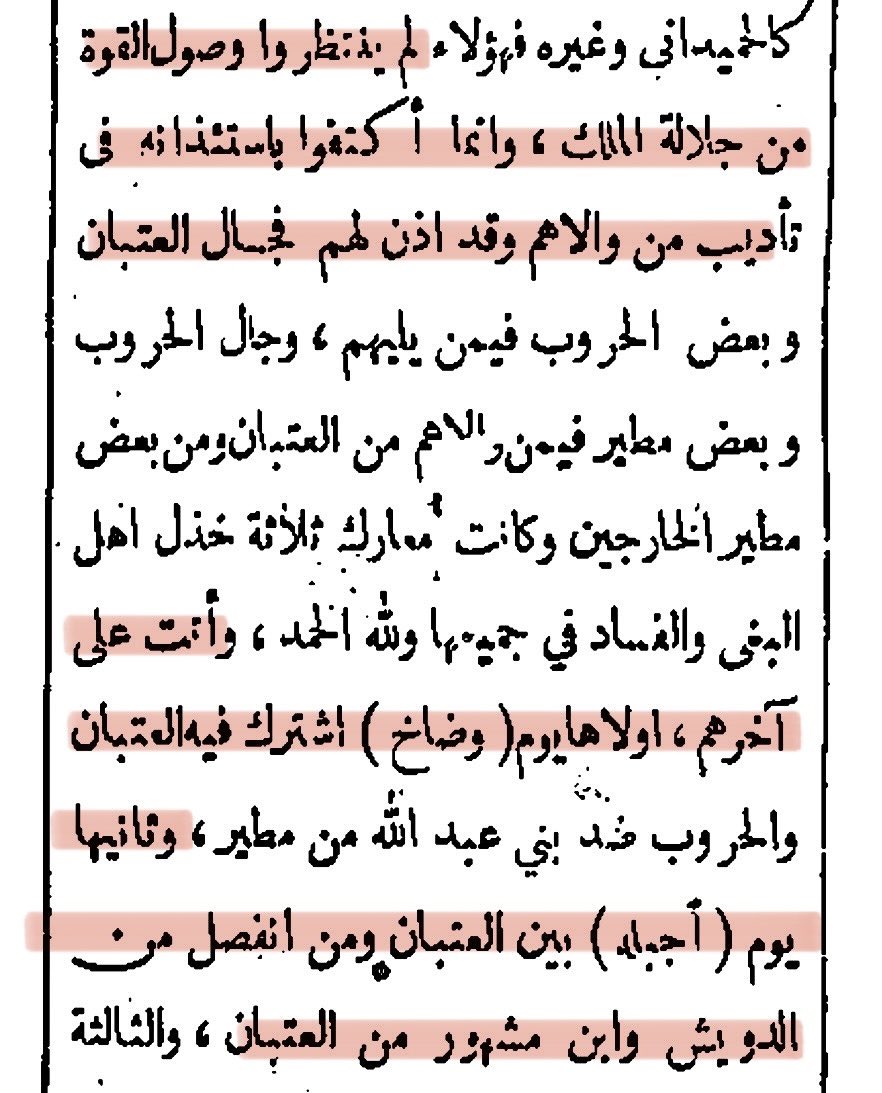 كالحميداني وغيره فهؤلاء لم ينتظروا وصول القوة
من جلالة الملك ، وانما أكتفوا باستئذانه في
تأديب من والاهم وقد اذن لهم فجال العتبان
وبعض الحروب فيمن يليهم ، وجال الحروب
وبعض مطير فيمن والاهم من العتبان ومن بعض
مطير الخارجين وكانت معارك ثلاثة خذل اهل
البغي والفساد في جميعها ولله الحمد ، وأتت على
آخرهم ، اولاها يوم ( وضاخ ) اشترك فيه العتبان
والحروب ضد بني عبد الله من مطير ، وثانيها
يوم ( أجباد ) بين العتبان ومن انفصل من
الدويش وابن مشهور من العتبان ، والثالثة